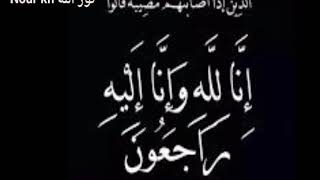 نور الله Nour kh
الذين إذا أصابتهم مصيبة قالوا
إِنَّا لِلَّهِ وَإِنَّا إِلَيْهِ
رَاجِعُونَ